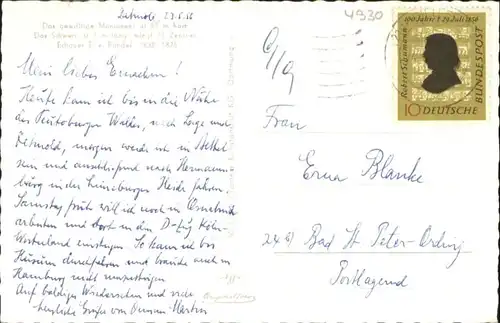 Detmold 27.8.56
4930
Das gewaltige Monument ist 57 m hoch
Das Schwert 7 m lang, wiegt 11 Zentner
Erbauer E. v. Bandel 1838-1875
Robert Schumann
100. Todestag 29. Juli 1956
10 DEUTSCHE
BUNDESPOST
Mein liebes Ernachen!
Heute kam ich bis in die Nähe
des Teutoburger Waldes, nach Lage und
Detmold, morgen werde ich in Bethel
sein und anschließend nach Hermanns-
burg in der Lüneburger Heide fahren.
Samstag früh will ich noch in Osnabrück
arbeiten und dort in den D-Zug Köln-
Westerland einsteigen. So kann ich bis
Husum durchfahren und brauche auch in
Hamburg nicht umzusteigen
Auf baldiges Wiedersehen und viele
herzliche Grüße von Deinem Martin
Frau
Erna Blanke
24b) Bad St Peter-Ording
Postlagernd